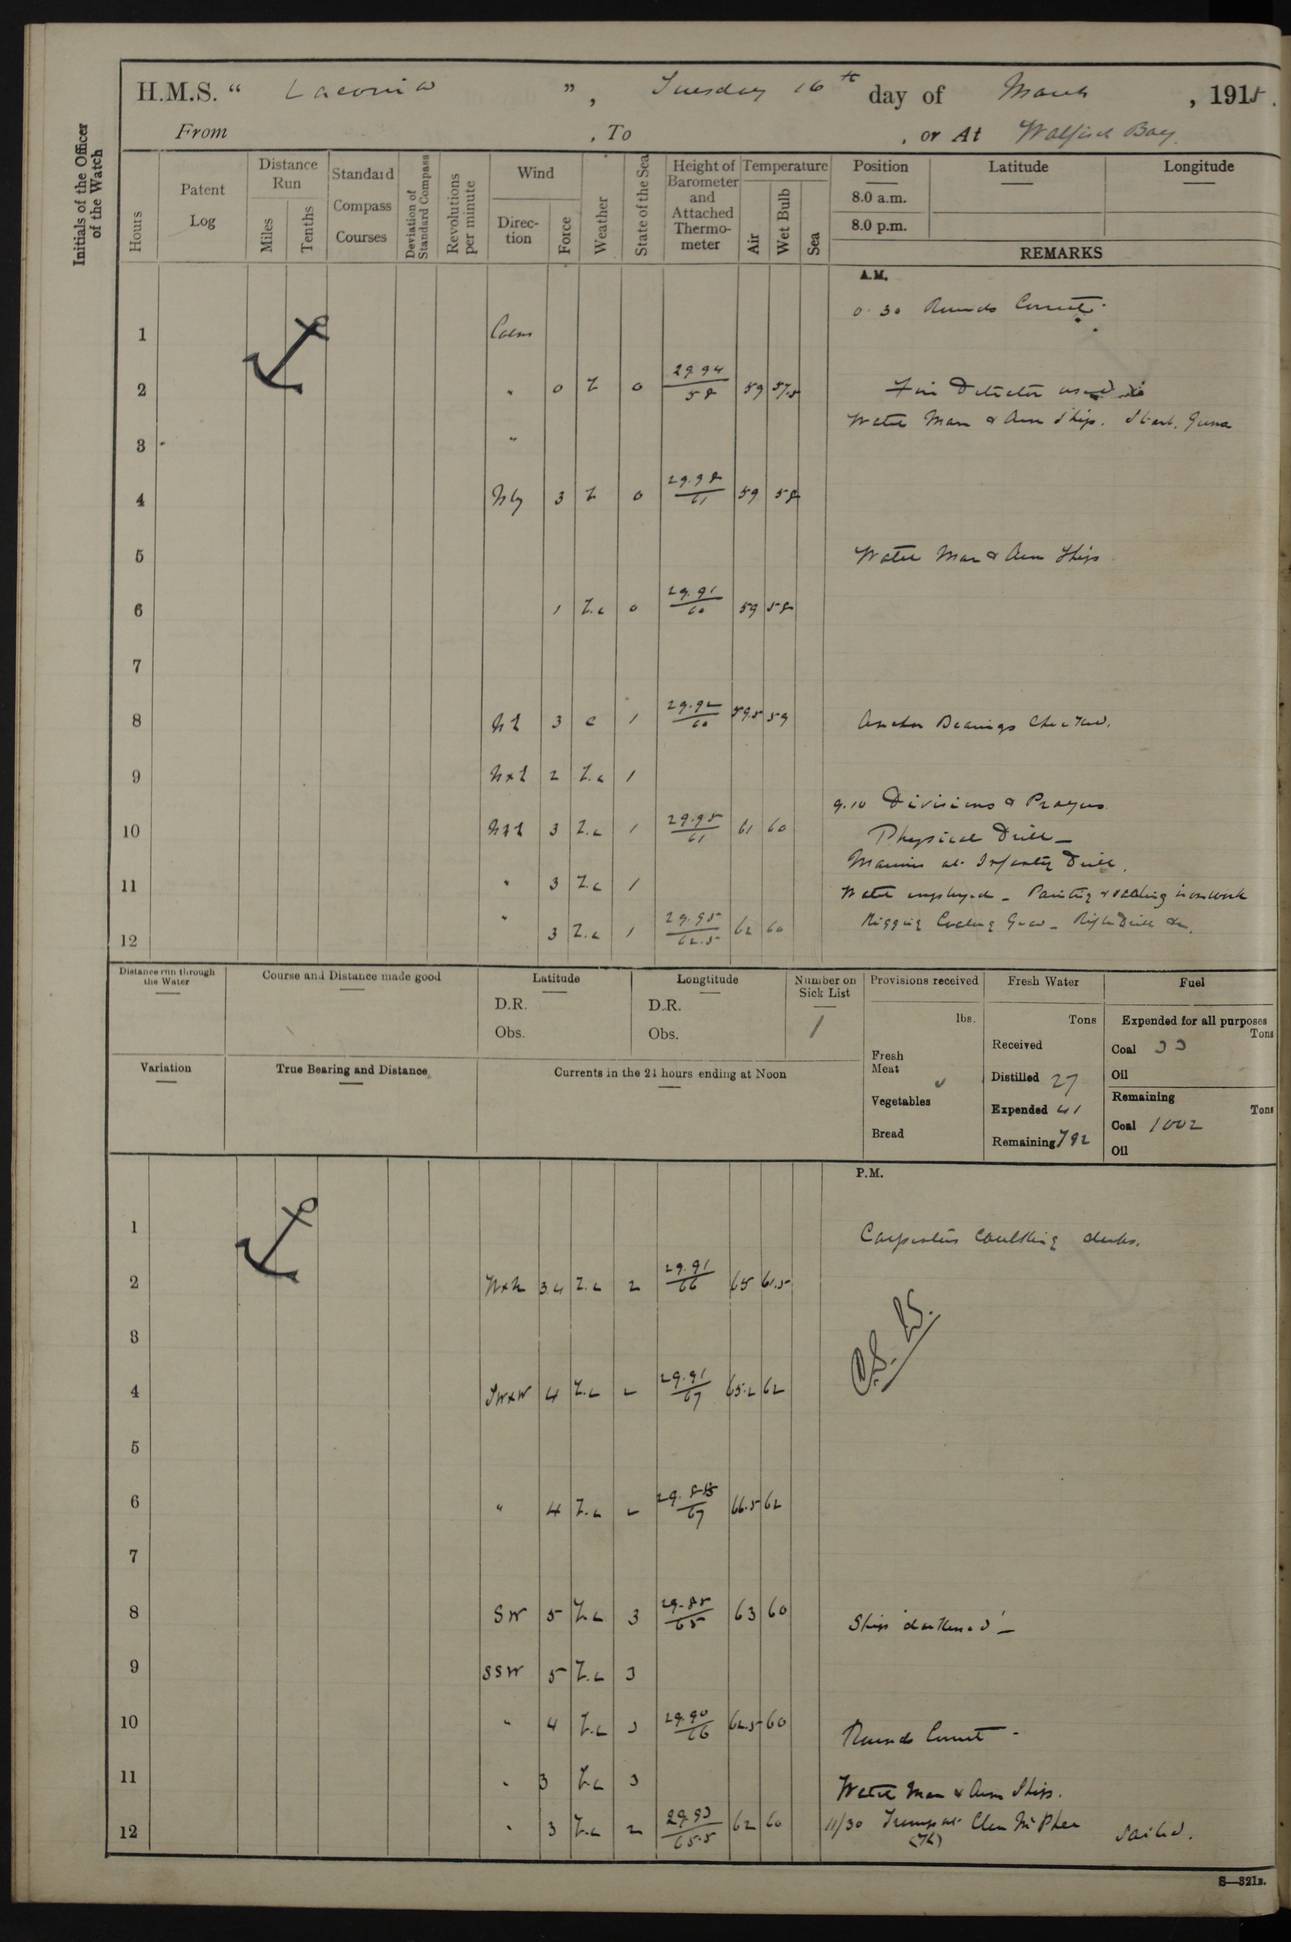 H.M.S. “ Laconia ” , Tuesday 16th day of March , 1915.
From , To , or At Walfisch Bay
Initials of the Officer of the Watch
Hours
Patent Log
Distance Run
Miles
Tenths
Standard Compass Courses
Deviation of Standard Compass
Revolutions per minute
Wind
Direction
Force
Weather
State of the Sea
Height of Barometer and Attached Thermometer
Temperature
Air
Wet Bulb
Sea
Position
8.0 a.m.
8.0 p.m.
Latitude
Longitude
REMARKS
A.M.
0.30 Rounds Correct.
1 Calm
2 " 0 Z 0 29.94/58 59 57.5
Water Man & Arm Ship. Starb. Guns
3 "
4 Nly 3 Z 0 29.98/61 59 58
5 Watch Man & Arm Ships
6 1 Z.c 0 29.91/60 59 58
7
8 3 c 1 29.92/60 59.5 59 Anchor Bearings Checked.
9 2 Z.c 1
9.10 Divisions & Prayers
10 3 Z.c 1 29.95/61 61 60 Physical Drill —
Marines at Infantry Drill.
11 " 3 Z.c 1 employed — Painting & scaling ironwork
12 " 3 Z.c 1 29.95/62.5 62 60 Rigging Coaling Gear — Rifle Drill &c.
Distance run through the Water
Course and Distance made good
Latitude
D.R.
Obs.
Longtitude
D.R.
Obs.
Number on Sick List
1
Provisions received
lbs.
Fresh Meat
Vegetables
Bread
Fresh Water
Tons
Received
Distilled 27
Expended 41
Remaining 792
Fuel
Expended for all purposes
Tons
Coal 33
Oil
Remaining
Tons
Coal 1002
Oil
Variation
True Bearing and Distance
Currents in the 24 hours ending at Noon
P.M.
1 Carpenters caulking decks.
2 3.4 Z.c 2 29.91/66 65 61.5
3
4 SWxW 4 Z.c 2 29.91/67 65.2 62
5
6 " 4 Z.c 2 67 66.5 62
7
8 SW 5 Z.c 3 29.85/65 63 60 Ship 'darkened' —
9 SSW 5 Z.c 3
10 " 4 Z.c 3 29.90/66 62.5 60 Rounds Correct -
11 " 3 Z.c 3 Watch Man & Arm Ship.
12 " 3 Z.c 2 29.93/65.5 62 60 11/30 Clan McPhee Sailed.
S—321z.